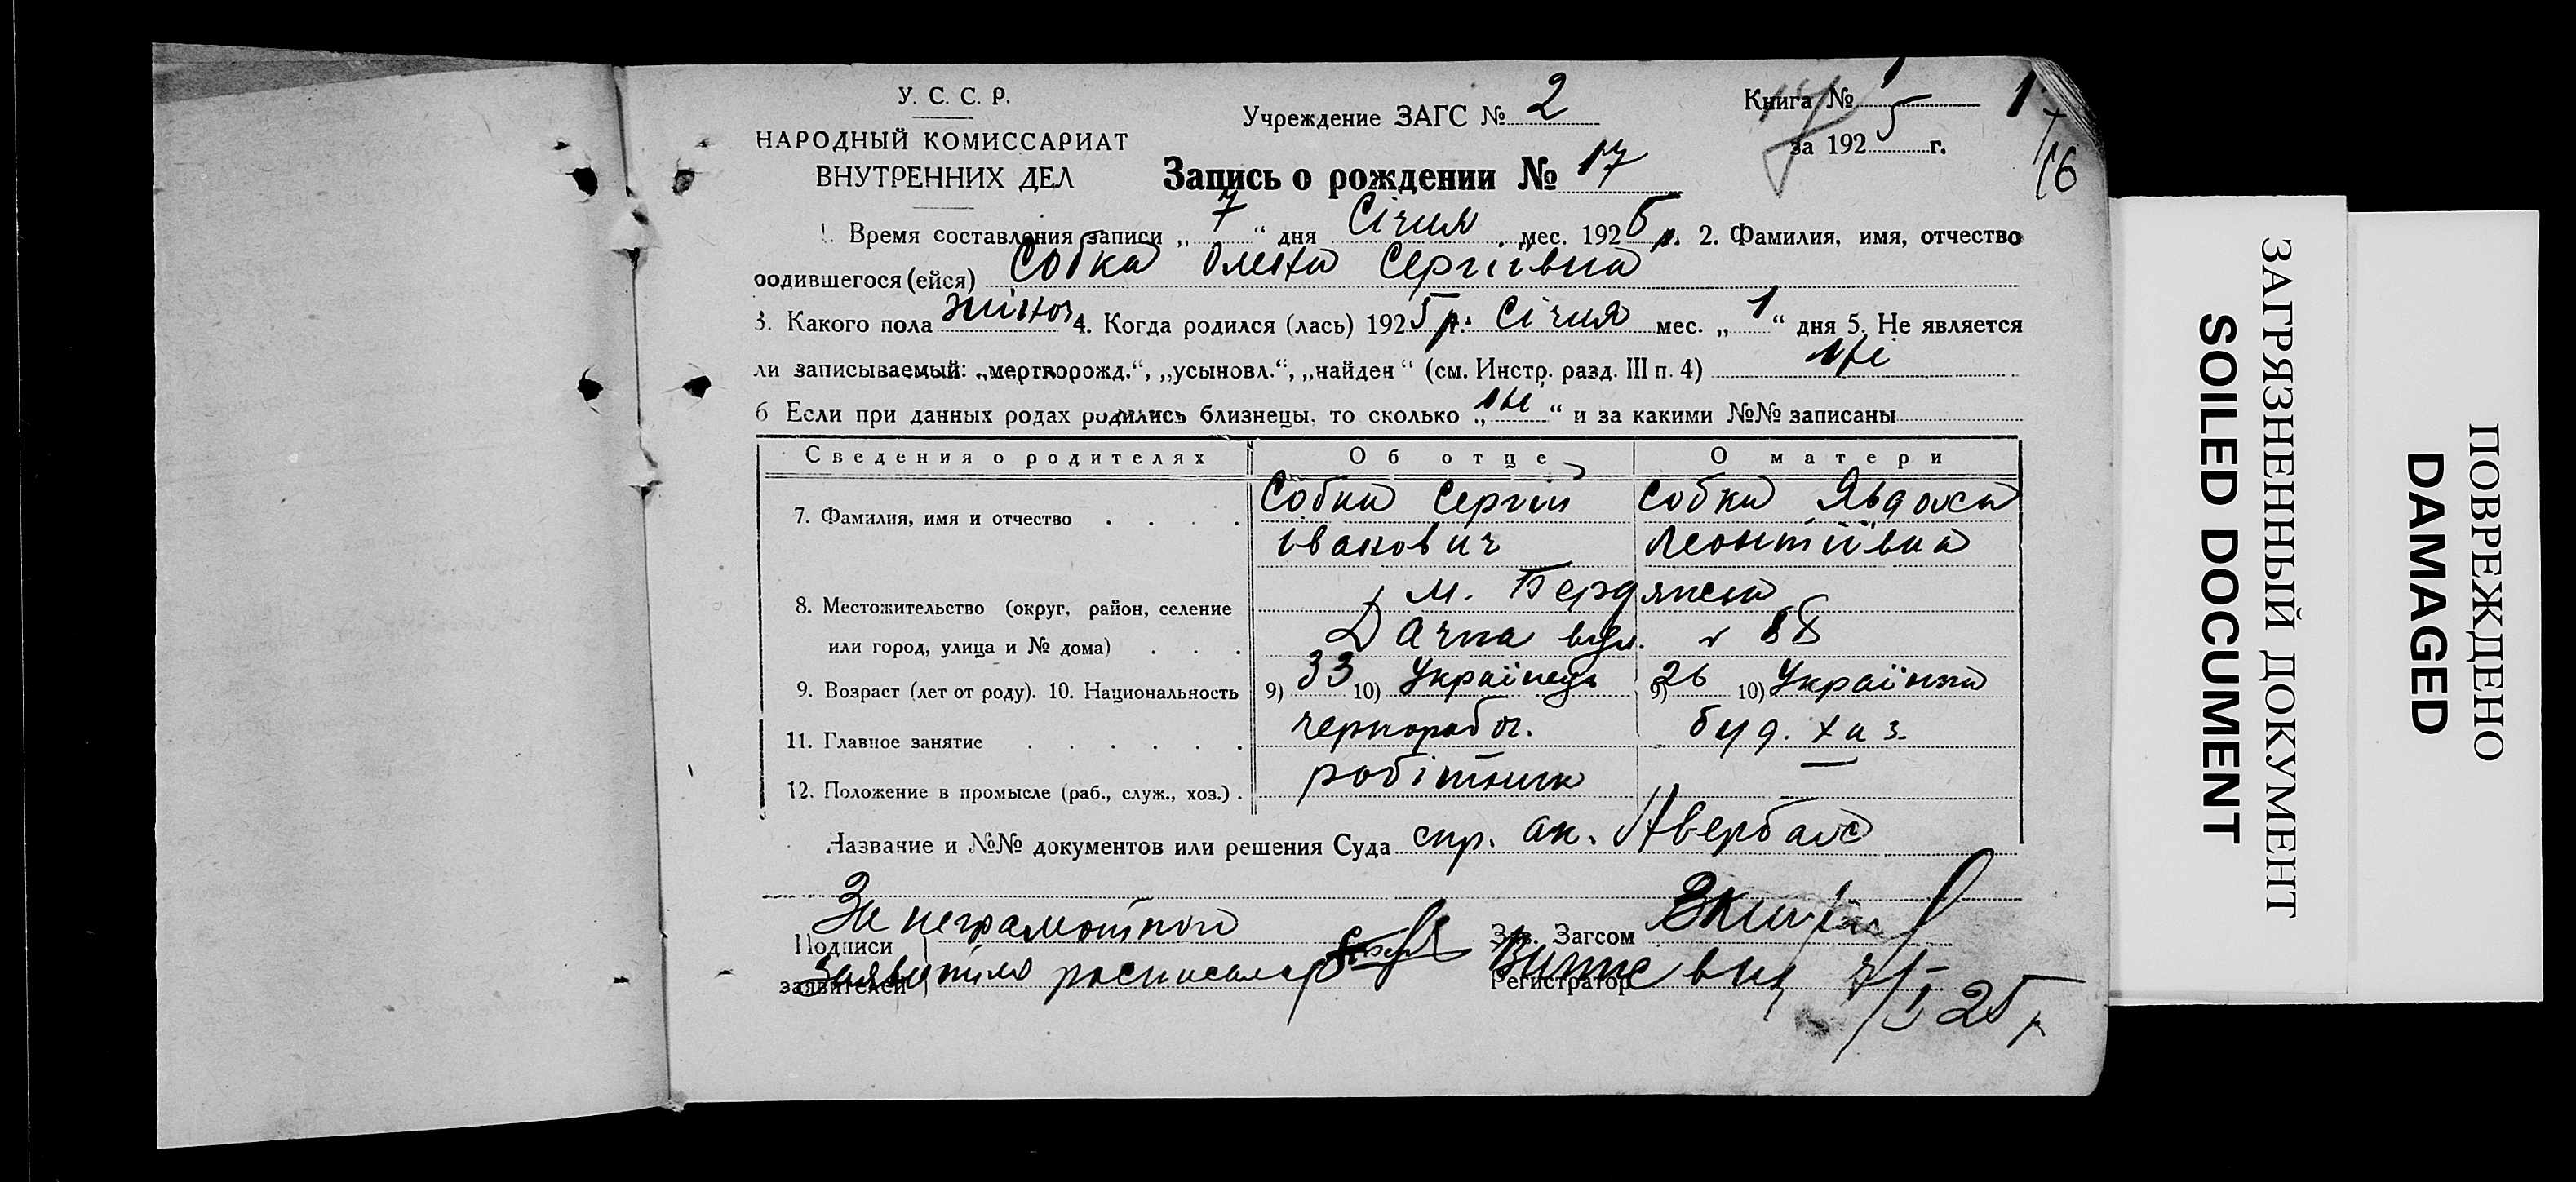 У. С. С. Р.
НАРОДНЫЙ КОМИССАРИАТ
ВНУТРЕННИХ ДЕЛ
Учреждение ЗАГС № 2
Книга № 1
за 1925 г.
1
16
Запись о рождении № 17
1. Время составления записи „7“ дня Січня мес. 1925 р. 2. Фамилия, имя, отчество
родившегося (ейся) Собка Олена Сергіївна
3. Какого пола жіноч 4. Когда родился (лась) 1925 р. Січня мес. „1“ дня 5. Не является
ли записываемый: „мертворожд.“, „усыновл.“, „найден“ (см. Инстр. разд. III п. 4) ні
6 Если при данных родах родились близнецы, то сколько „ні“ и за какими №№ записаны
Сведения о родителях Об отце О матери
7. Фамилия, имя и отчество Собка Сергій Собка Явдоха
Іванович Леонтіївна
8. Местожительство (округ, район, селение м. Бердянськ
или город, улица и № дома) Дачна вул. № 88
9. Возраст (лет от роду). 10. Национальность 9) 33 10) Українець 9) 26 10) Українка
11. Главное занятие чернороб. буд. хаз.
12. Положение в промысле (раб., служ., хоз.) робітник —
Название и №№ документов или решения Суда спр. ак. Авербах
За неграмотного
Подписи Зав. Загсом
заявителей заявителя росписался Регистратор 7/I 25 р
ЗАГРЯЗНЕННЫЙ ДОКУМЕНТ
SOILED DOCUMENT
ПОВРЕЖДЕНО
DAMAGED